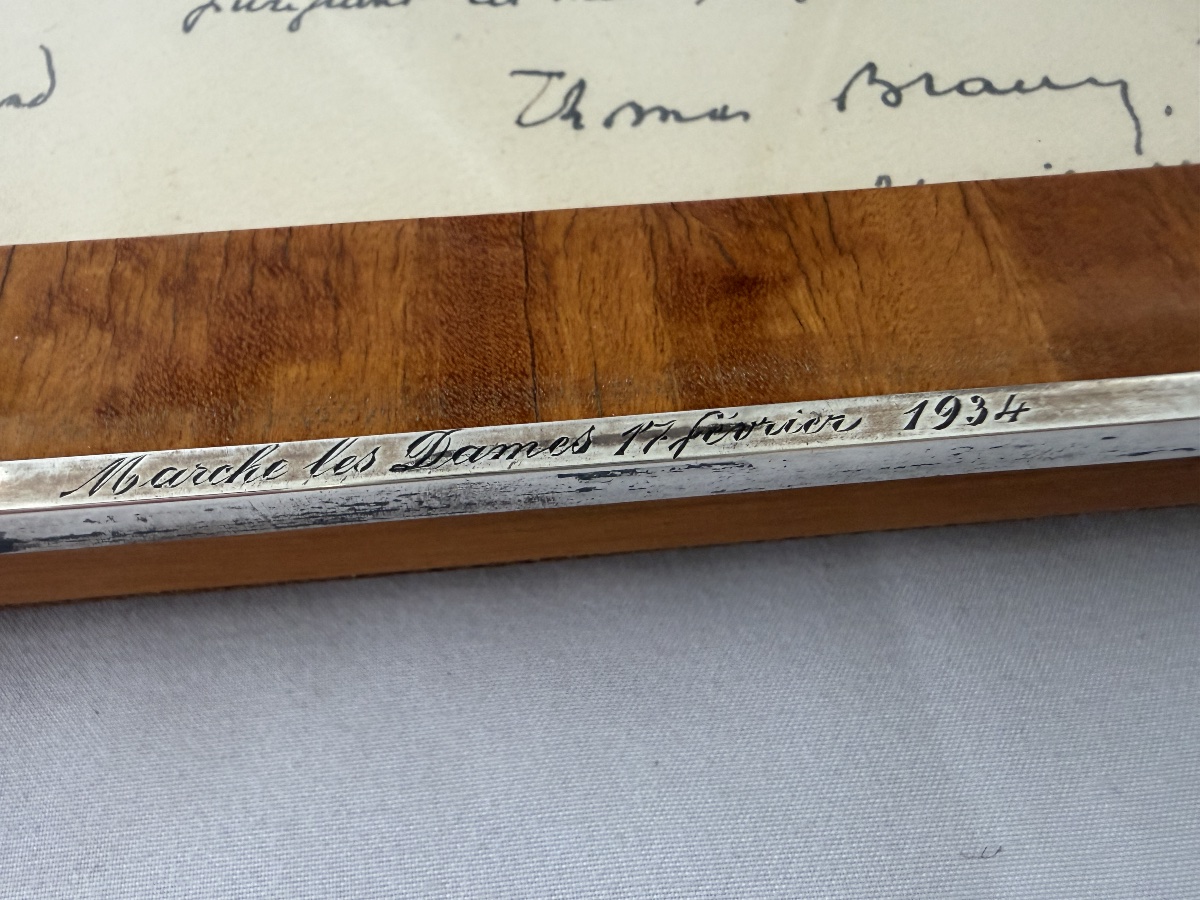 Thomas Braun.
Marche les Dames 17 février 1934